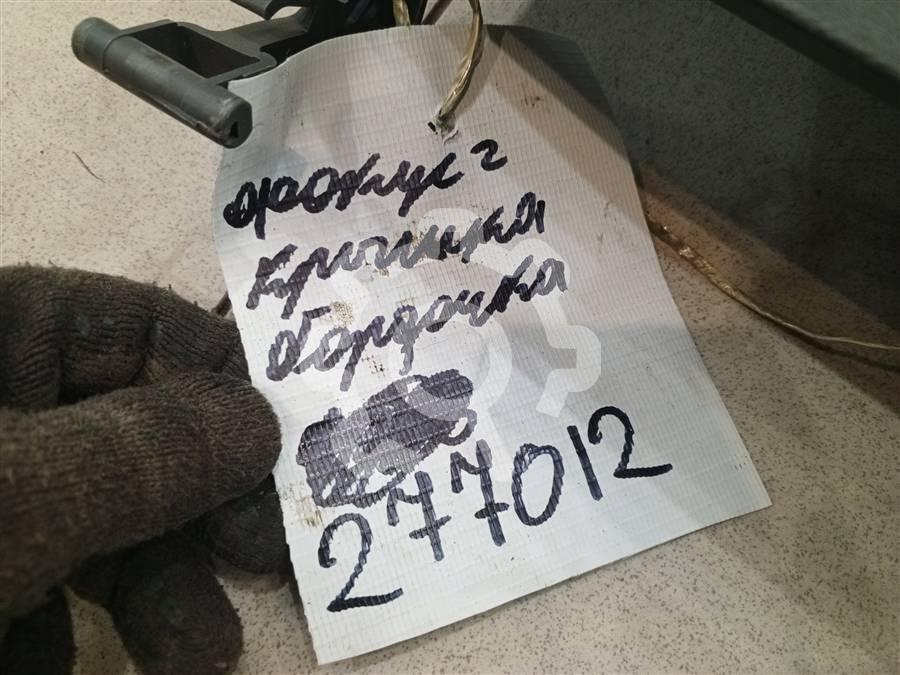 фокус 2
крышка
бардачка
277012